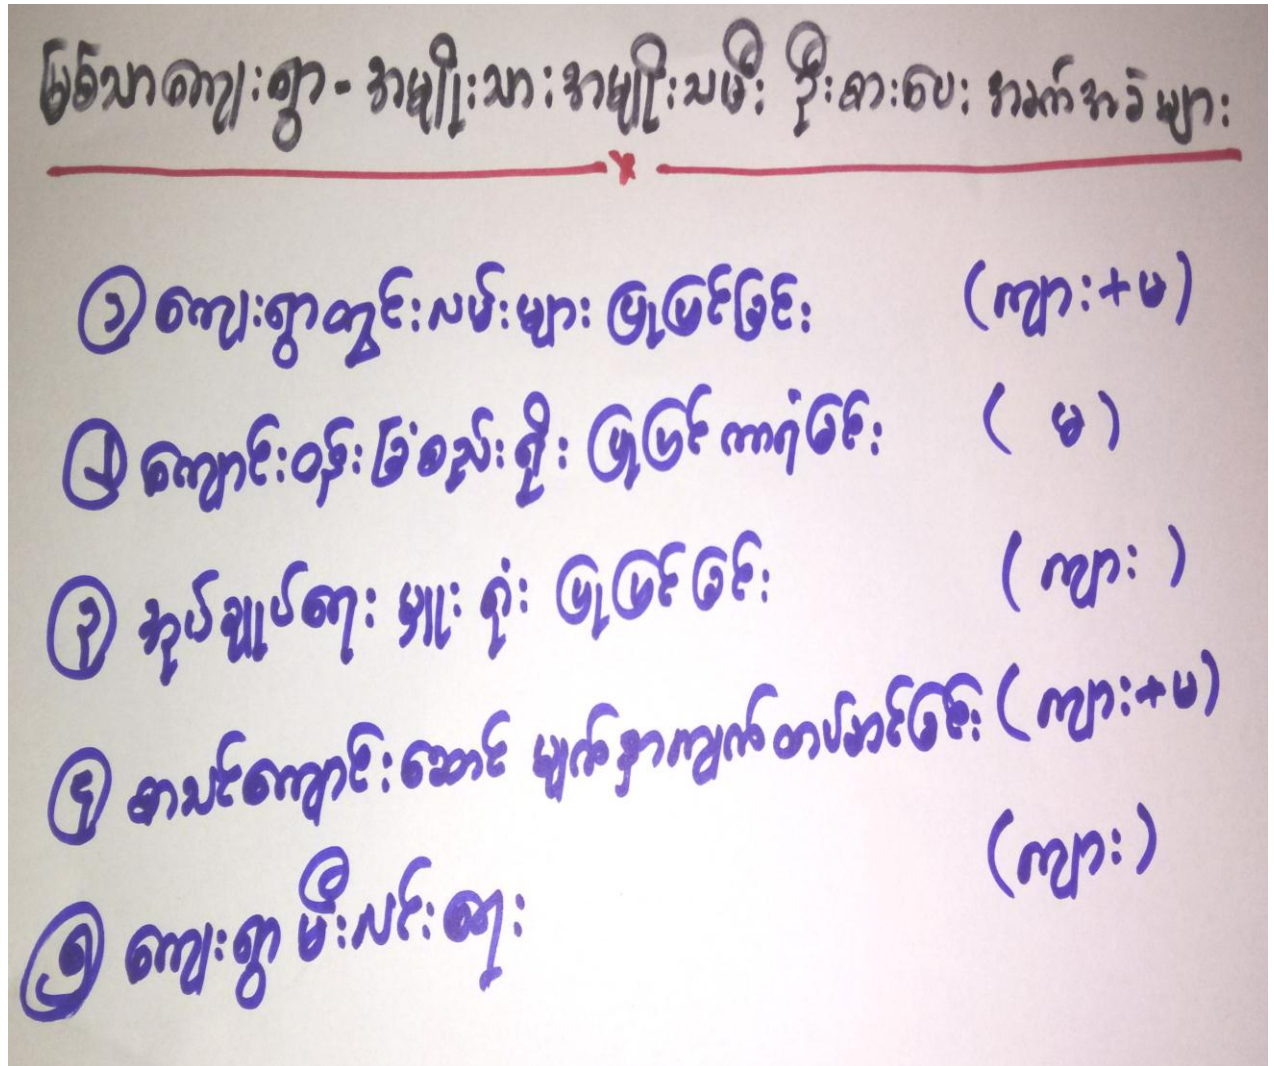 မြစ်သာကျေးရွာ - အမျိုးသားအမျိုးသမီး ဦးစားပေး အခက်အခဲများ
x
၁ ကျေးရွာတွင်းလမ်းများ ပြုပြင်ခြင်း (ကျား+မ)
၂ ကျောင်းဝန်းခြံစည်းရိုး ပြုပြင်ကာရံခြင်း ( မ )
၃ အုပ်ချုပ်ရေးမှူးရုံး ပြုပြင်ခြင်း ( ကျား )
၄ စာသင်ကျောင်းဆောင် မျက်နှာကျက်တပ်ဆင်ခြင်း ( ကျား+မ)
၅ ကျေးရွာမီးလင်းရေး (ကျား)